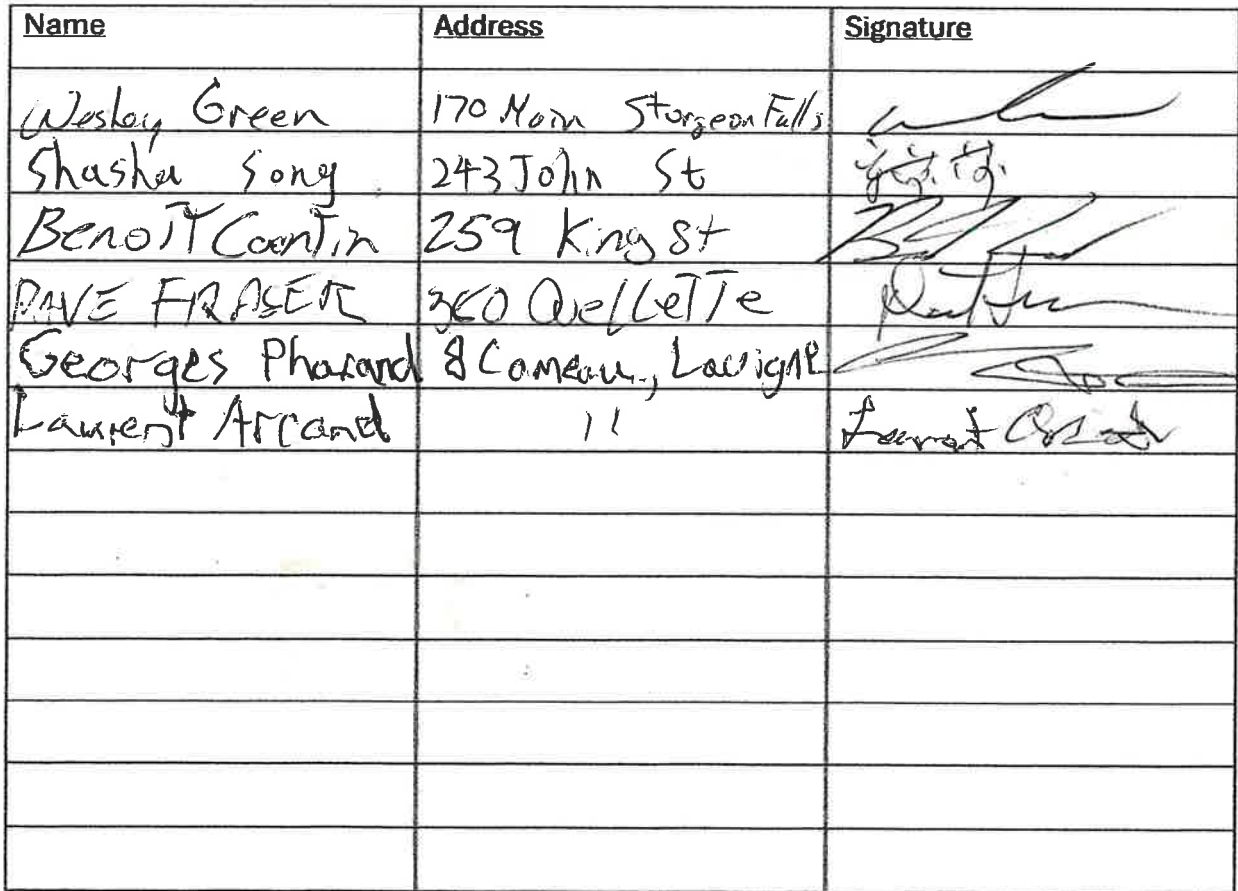 Name Address Signature
Wesley Green 170 Main Sturgeon Falls
Shasha Song 243 John St
BENOIT Cantin 259 King St
DAVE FRASER 360 OuelLeTTe
Georges Pharand 8 Comeau, Lavigne
Laurent Arcand 11 Laurent